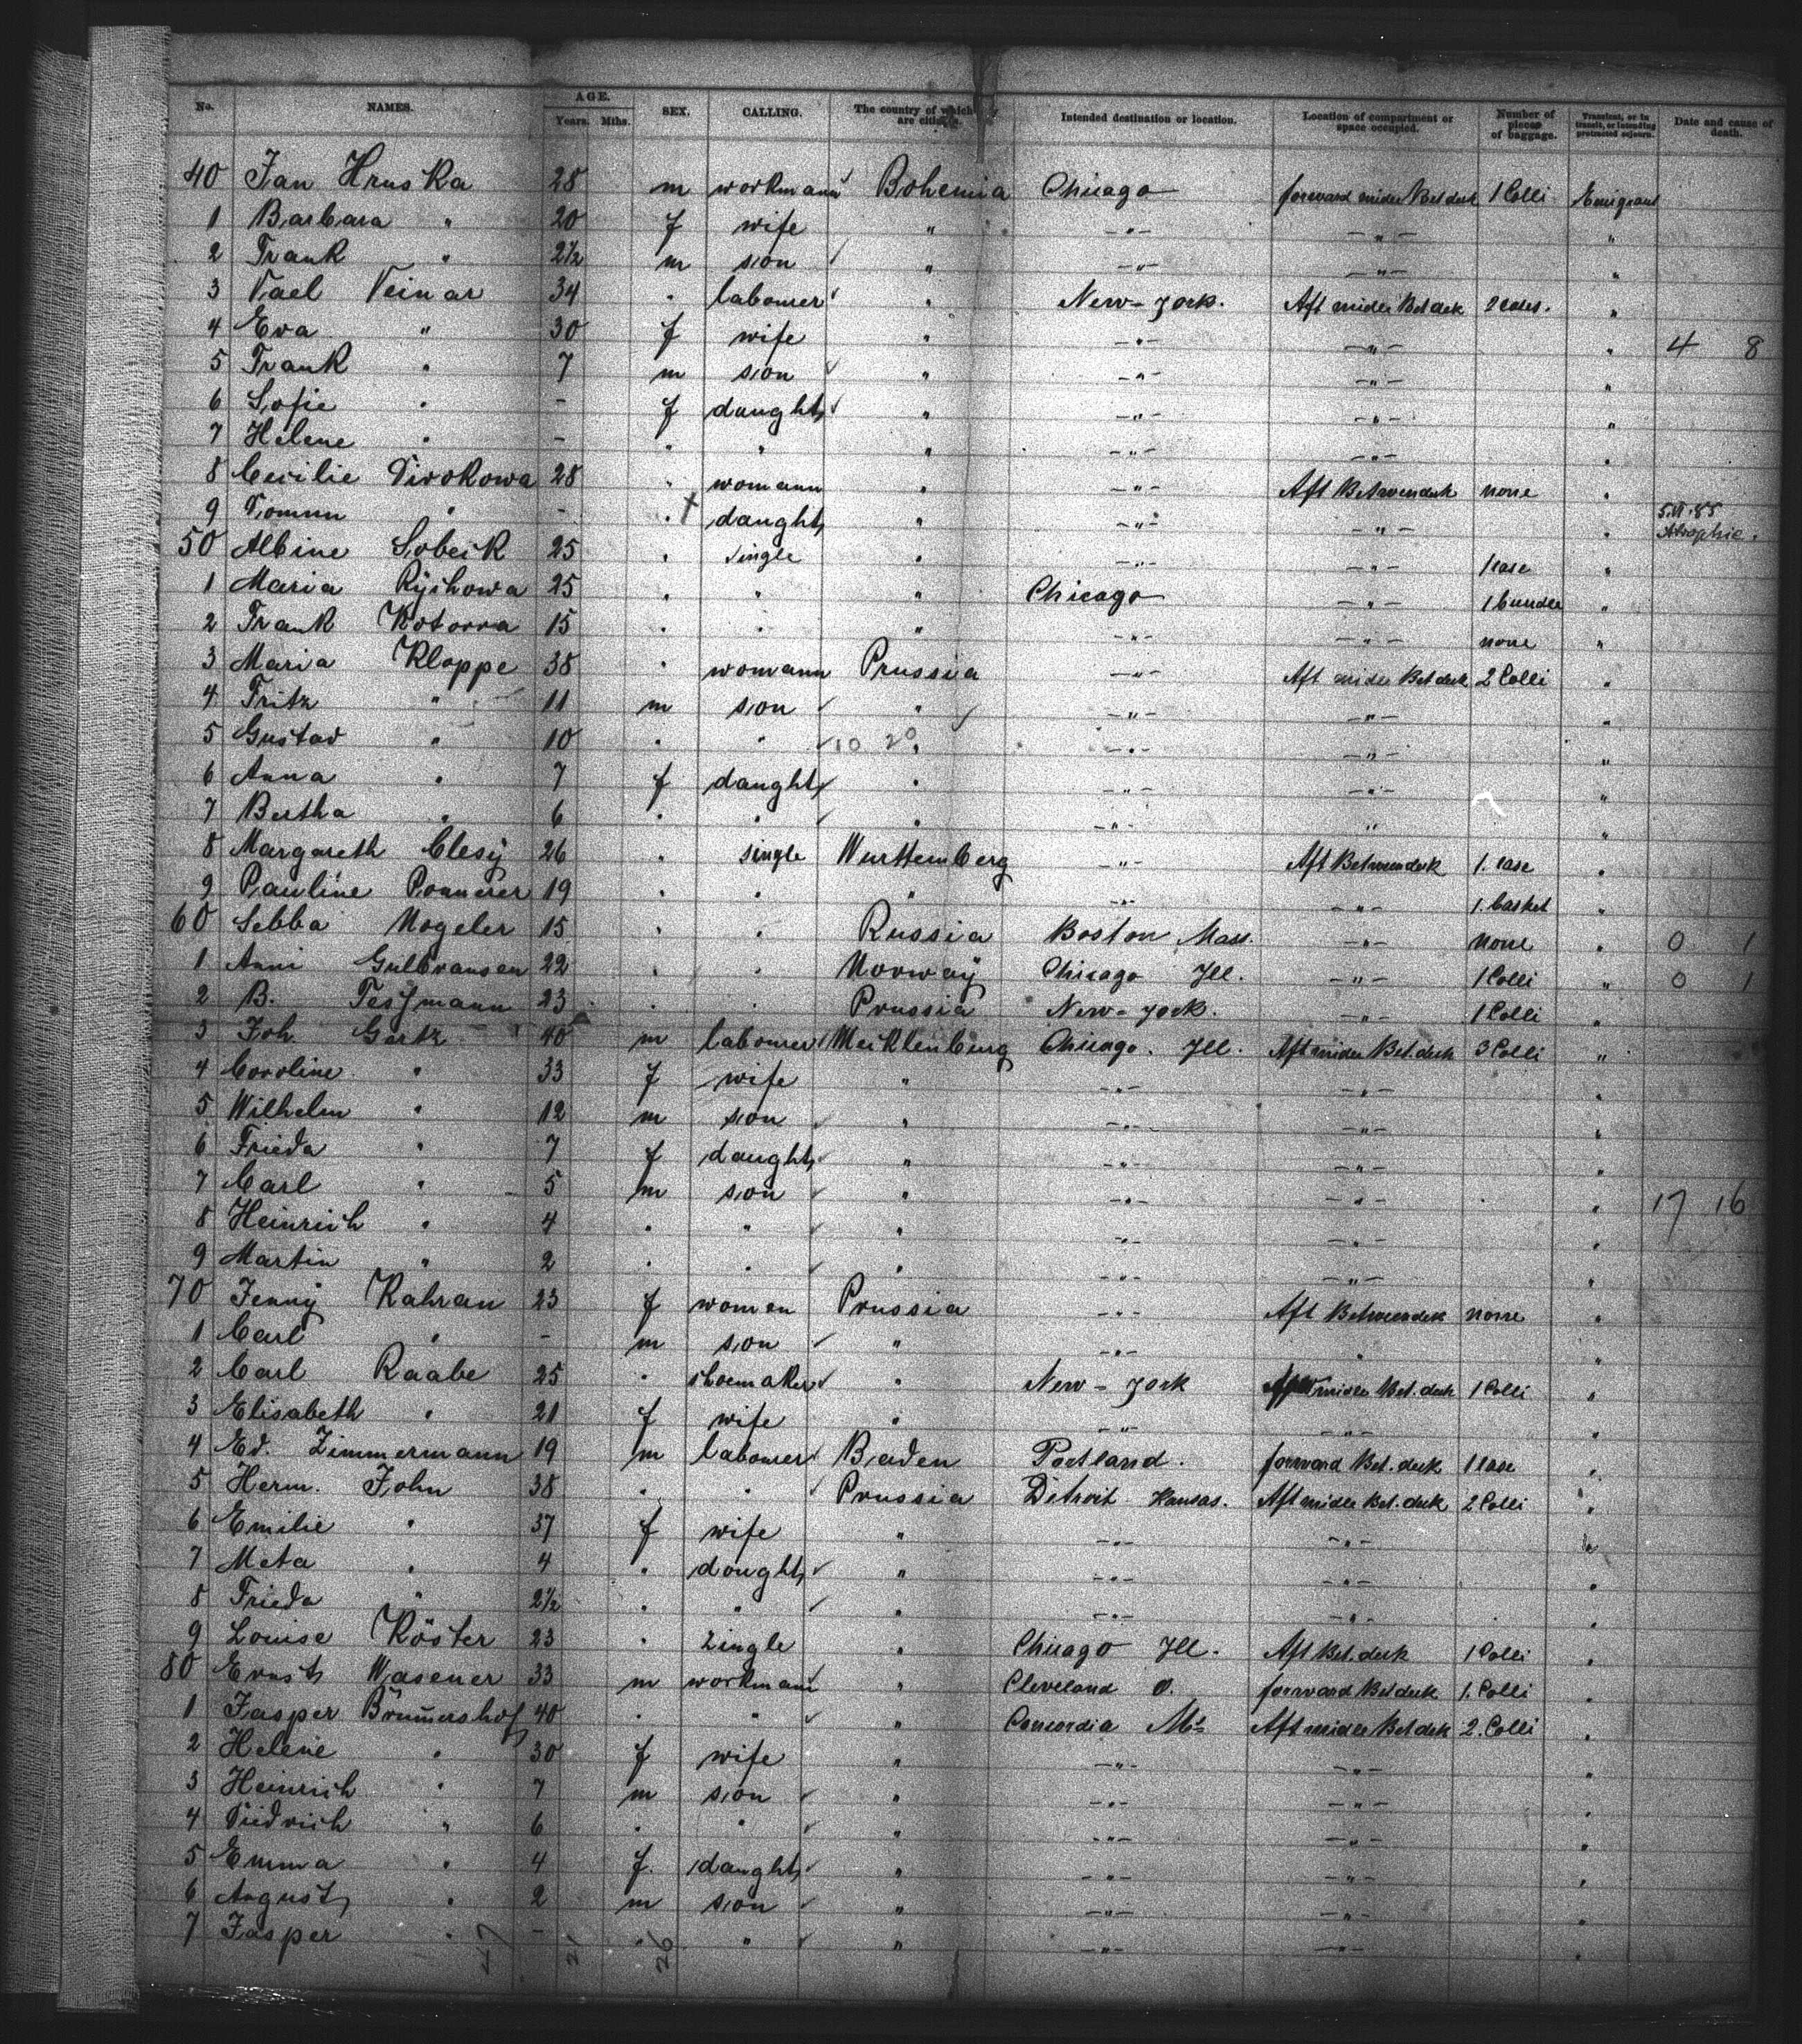 No. NAMES. AGE. Years. Mths. SEX. CALLING. The country of which they are citizens. Intended destination or location. Location of compartment or space occupied. Number of pieces of baggage. Transient, or in transit, or intending protracted sojourn. Date and cause of death.
40 Jan Hruska 28 m workmann Bohemia Chicago forward midle Betdeck 1 Colli Emigrant
1 Barbara " 20 f wife " -"- -"- "
2 Frank " 2½ m son " -"- -"- "
3 Vael Veinar 34 " labourer " New-York. Aft midle Betdek 2 Coles. "
4 Eva " 30 f wife " -"- -"- " 4 8
5 Frank " 7 m son " -"- -"- "
6 Sofie " - f daught, " -"- -"- "
7 Helene " - " " " -"- -"- "
8 Cecilie Pivokowa 28 " womann " -"- Aft Betweendeck none "
9 " - " daught, " -"- -"- " 5.VI.85 Atrophie.
50 Albine Sobeik 25 " single " -"- -"- 1 case "
1 Maria Ryshowa 25 " " " Chicago -"- 1 bundle "
2 Frank Kotorra 15 " " " -"- -"- none "
3 Maria Kloppe 38 " womann Prussia -"- Aft midle Betdeck 2 Colli "
4 Fritz " 11 m son " -"- -"- "
5 Gustav " 10 " " 10 20 " -"- -"- "
6 Anna " 7 f daught, " -"- -"- "
7 Bertha " 6 " " " -"- " "
8 Margareth Clesy 26 " single Wurttemberg -"- Aft Betweendeck 1. case "
9 Pauline Pommerer 19 " " " -"- -"- 1. basket "
60 Sebba Mogeler 15 " " Russia Boston Mass. -"- none " 0 1
1 Anni Gulbransen 22 " " Norway Chicago Ill. -"- 1 Colli " 0 1
2 B. Tessmann 23 " " Prussia New-York. -"- 1 Colli "
3 Joh. Gertz 40 m labourer Mecklenburg Chicago. Ill. Aft midle Bet.deck 3 Colli "
4 Coroline " 33 f wife " -"- -"- "
5 Wilhelm " 12 m son " -"- -"- "
6 Frieda " 7 f daught, " -"- -"- "
7 Carl " 5 m son " -"- -"- " 17 16
8 Heinrich " 4 " " " -"- -"- "
9 Martin " 2 " " " -"- -"- "
70 Jenny Kahran 23 f women Prussia -"- Aft Betweendeck none "
1 Carl " - m son " -"- " "
2 Carl Raabe 25 " shoemaker " New-York Aft midle Bet.deck 1 Colli "
3 Elisabeth " 21 f wife " -"- -"- "
4 Ed. Zimmermann 19 m labourer Baden Portland. forward Bet.deck 1 case "
5 Herm. John 38 " " Prussia Detroit Kansas. Aft midle Bet.deck 2 Colli "
6 Emilie " 37 f wife " -"- -"- "
7 Meta " 4 " dought, " -"- -"- "
8 Frieda " 2½ " " " -"- -"- "
9 Louise Köster 23 " Single " Chicago Ill. Aft Bet.deck 1 Colli "
80 Ernst Wasener 33 m workmann " Cleveland O. forward Betdeck 1. Colli "
1 Jasper Brümmershof 40 " " " Concordia Mo Aft midle Betdek 2. Colli "
2 Helene " 30 f wife " -"- -"- "
3 Heinrich " 7 m son " -"- -"- "
4 Diedrich " 6 " " " -"- -"- "
5 Emma " 4 f. daught, " -"- -"- "
6 August " 2 m son " -"- -"- "
7 Jasper " - " " " -"- -"- "
47 21 26